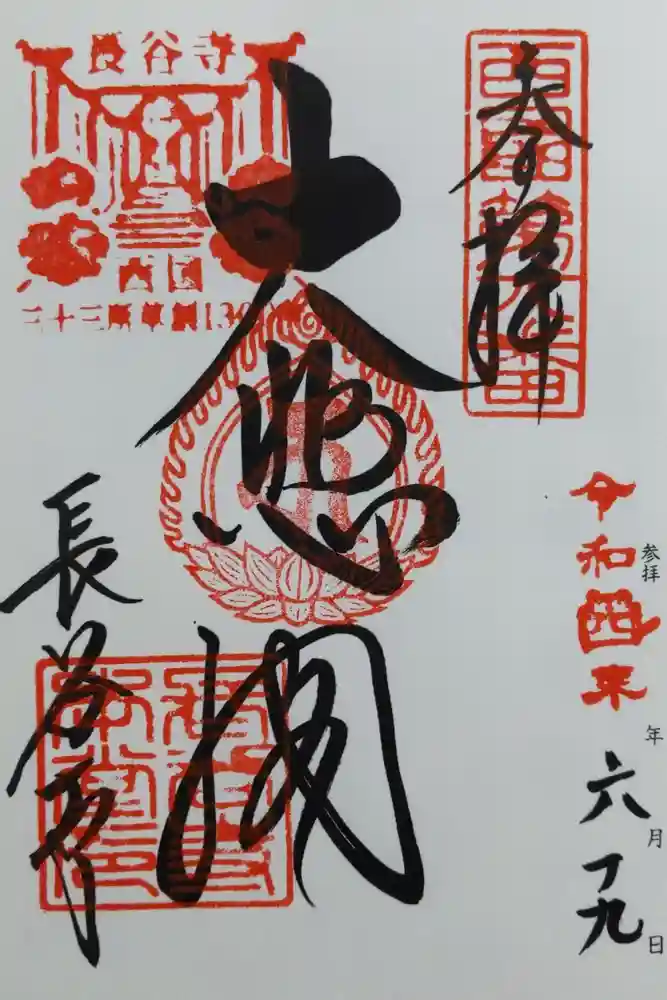 奉拝
西國第八番
大悲閣
長谷寺
長谷寺
西国
三十三所草創13
参拝
令和四
年
六月
十九日